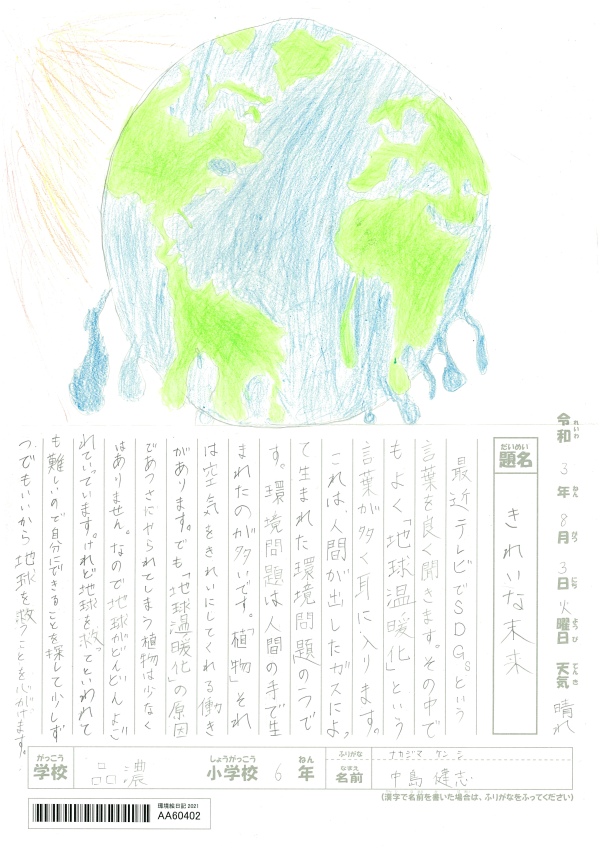 令和 3年 8月 3日 火曜日 天気 晴れ
れいわ ねん がつ にち ようび てんき
だいめい
題名
きれいな未来
最近テレビでSDGsという
言葉を良く聞きます。その中で
もよく「地球温暖化」という
言葉が多く耳に入ります。
これは人間が出したガスによっ
て生まれた環境問題の一つで
す。環境問題は人間の手で生
まれたのが多いです。「植物」それ
は空気をきれいにしてくれる働き
があります。でも「地球温暖化」の原因
であつさにやられてしまう植物は少なく
はありません。なので地球がどんどんよご
れていっています。けれど地球を救ってといわれて
も難しいので自分にできることを探して少しず
つでもいいから地球を救うことを心がけます。
がっこう
学校
品濃
しょうがっこう
小学校
6
ねん
年
ふりがな
ナカジマ ケンシ
なまえ
名前
中島 健志
(漢字で名前を書いた場合は、ふりがなをふってください)
環境絵日記 2021
AA60402